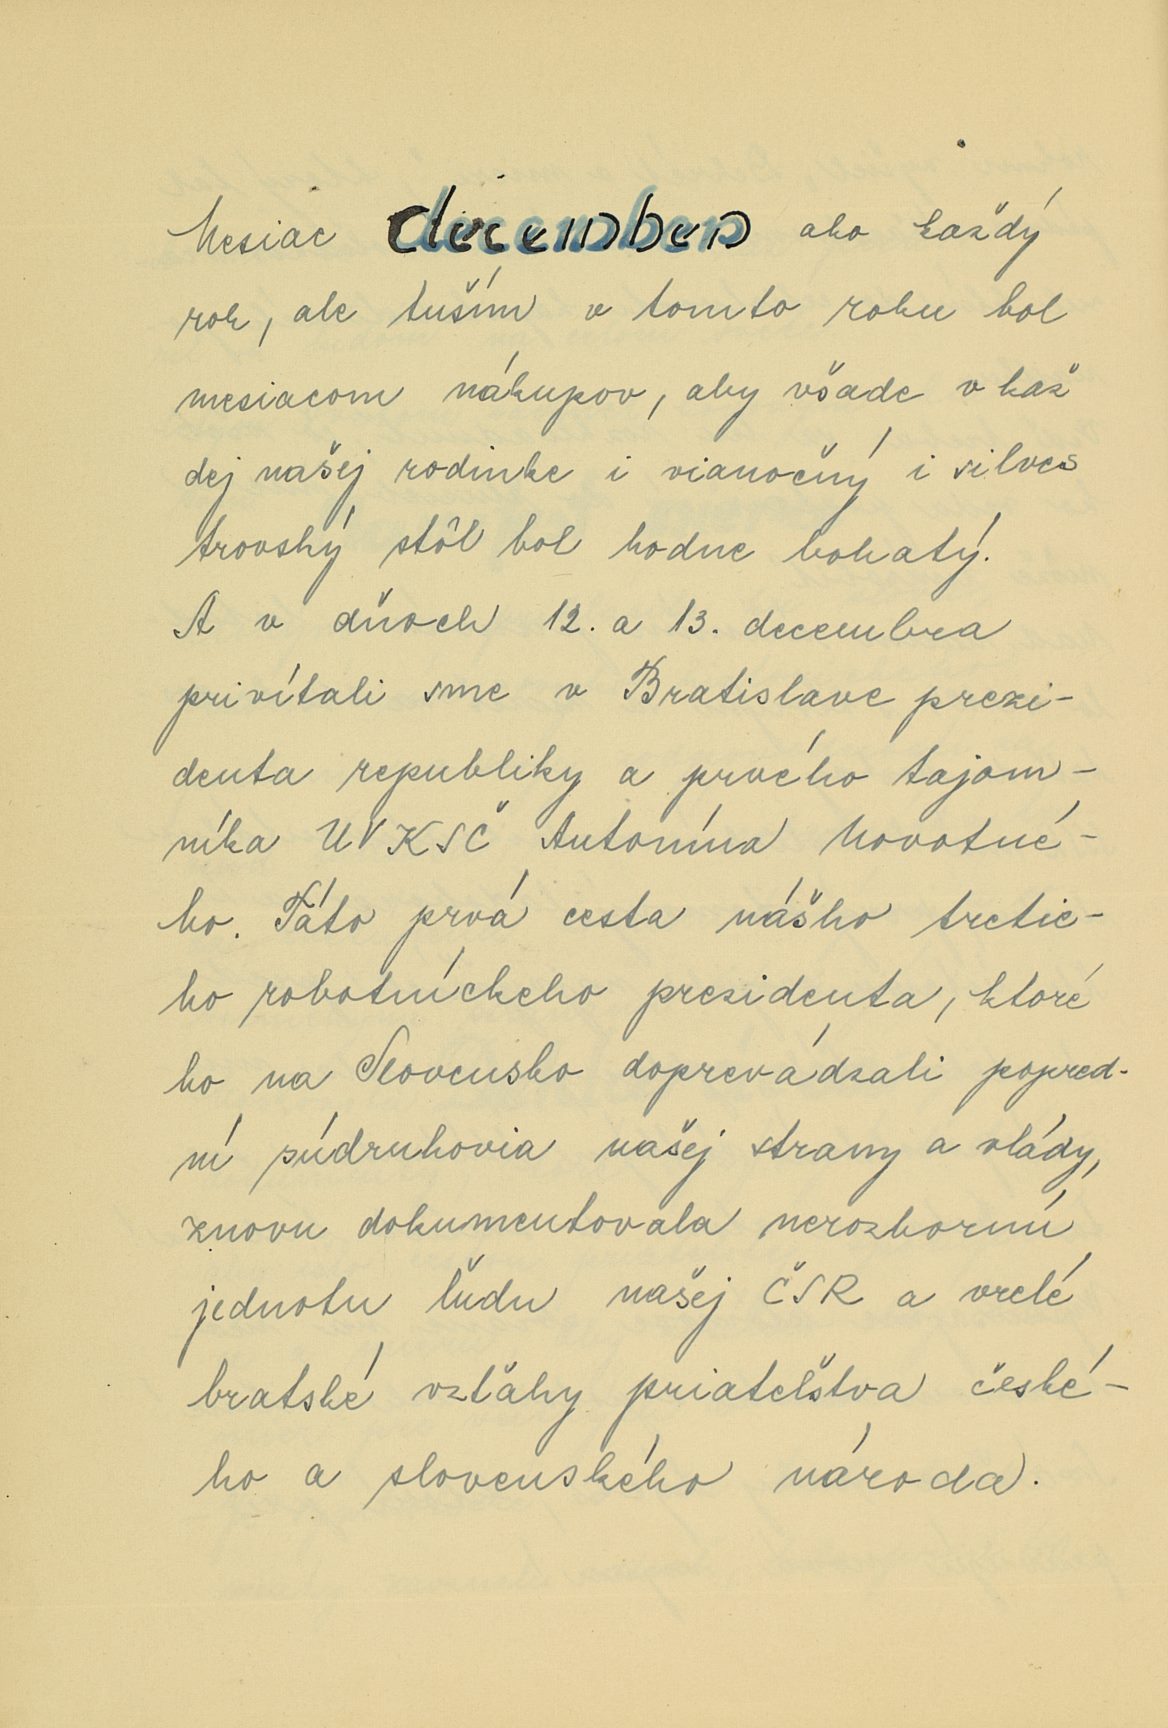 Mesiac december ako každý
rok, ale tuším v tomto roku bol
mesiacom nákupov, aby všade v kaž
dej našej rodinke i vianočný i silves
trovský stôl bol hodne bohatý.
A v dňoch 12. a 13. decembra
privítali sme v Bratislave prezi-
denta republiky a prvého tajom-
níka ÚV KSČ Antonína Novotné-
ho. Táto prvá cesta nášho tretie-
ho robotníckeho prezidenta, ktoré
ho na Slovensko doprevádzali popred-
ní súdruhovia našej strany a vlády,
znovu dokumentovala nerozbornú
jednotu ľudu našej ČSR a vrelé
bratské vzťahy priateľstva české-
ho a slovenského národa.